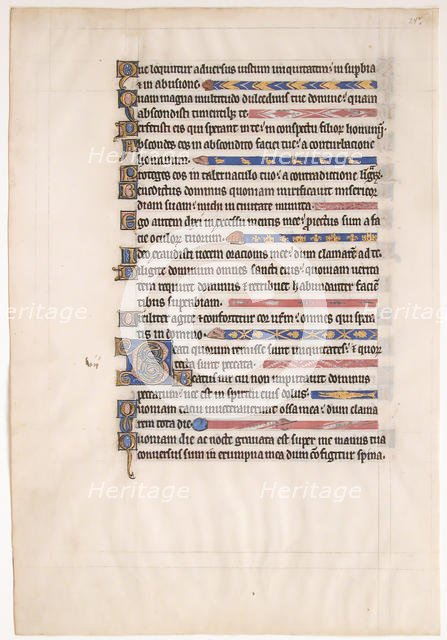 Que loquitur adversus iustum iniquitatem: in supbia
& in abusione.
Quam magna multitudo dulcedinis tue domine: quam
abscondisti timentib; te.
Perfecisti eis qui sperant in te: in conspectu filior hominũ
Abscondes eos in abscondito faciei tue: a conturbatione
hominum.
Proteges eos in tabernaculo tuo: a contradictione
Benedictus dominus quoniam mirificavit misericor
diam suam: michi in civitate munita.
Ego autem dixi in excessu mentis mee: piectus sum a fa
cie oculor tuorum.
Ideo exaudisti vocem orationis mee: dum clamarẽ ad te
Diligite dominum omnes sancti eius: quoniam verita
tem requiret dominus & retribuet habundanter facien
tibus superbiam.
Viriliter agite & confortetur cor vrm: omnes qui spera
tis in domino.
Beati quorum remisse sunt iniquitates: & quor
tecta sunt peccata.
Beatus vir cui non imputavit dominus
peccatum: nec est in spiritu eius dolus.
Quoniam tacui inveteraverunt ossa mea: dum clama
rem tota die.
Quoniam die ac nocte gravata est super me manus tua
conversus sum in erumpna mea dum cõfigitur spina.
Heritage
Heritage
Heritage
Heritage
Heritage
Heritage